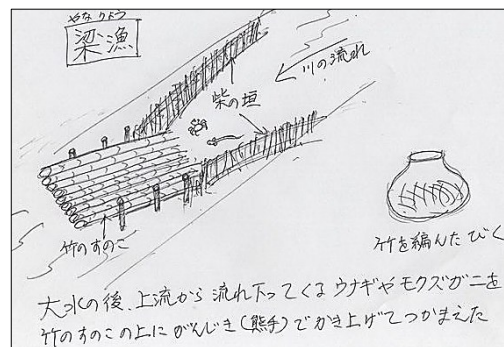 やなりょう
梁漁
川の流れ
柴の垣
竹のすのこ
竹を編んだびく
大水の後、上流から流れ下ってくるウナギやモクズガニを
竹のすのこの上にがんじき(熊手)でかき上げてつかまえた